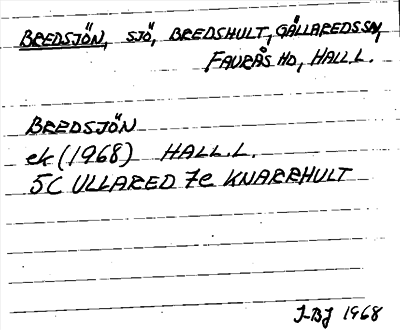 BREDSJÖN, SJÖ, BREDSHULT, GÄLLAREDS SN,
FAURÅS HD, HALL.L.
BREDSJÖN
ek (1968) HALL.L.
5C ULLARED 7e KNARRHULT
J-BJ 1968